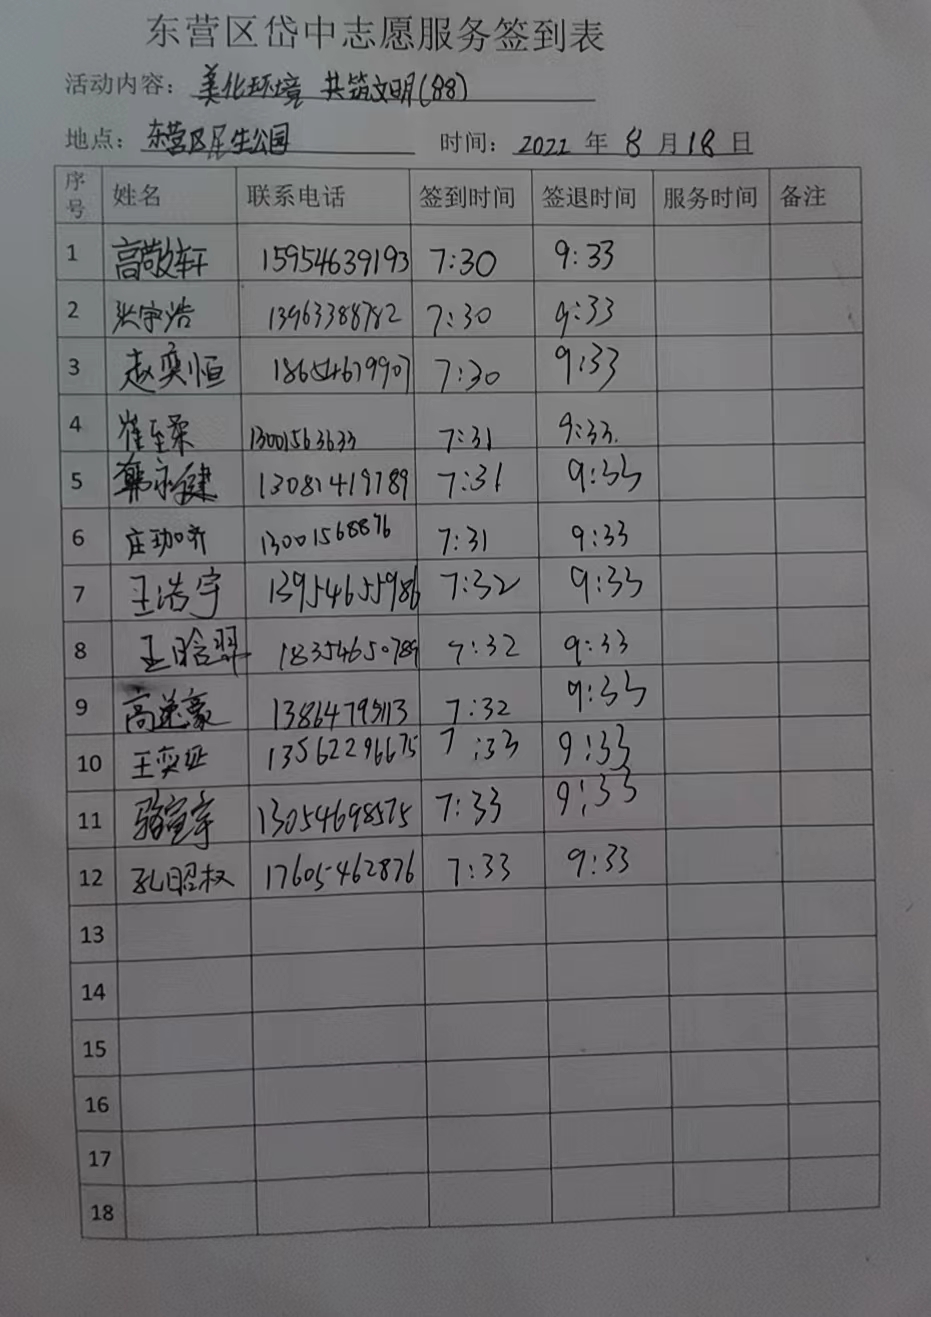 东营区岱中志愿服务签到表
活动内容: 美化环境 共筑文明(88)
地点: 东营区民生公园 时间: 2022 年 8 月 18 日
序号 姓名 联系电话 签到时间 签退时间 服务时间 备注
1 高敬轩 15954639193 7:30 9:33
2 张宇浩 13963388782 7:30 9:33
3 赵奕恒 18654679907 7:30 9:33
4 崔 13001563633 7:31 9:33.
5 郭永健 13081419789 7:31 9:33
6 庄 13001568876 7:31 9:33
7 王浩宇 13954655986 7:32 9:33
8 王晗 18354650789 7:32 9:33
9 高 豪 7:32 9:33
10 王奕 13562296675 7:33 9:33
11 骆 13054698575 7:33 9:33
12 孔昭权 17605462876 7:33 9:33
13
14
15
16
17
18